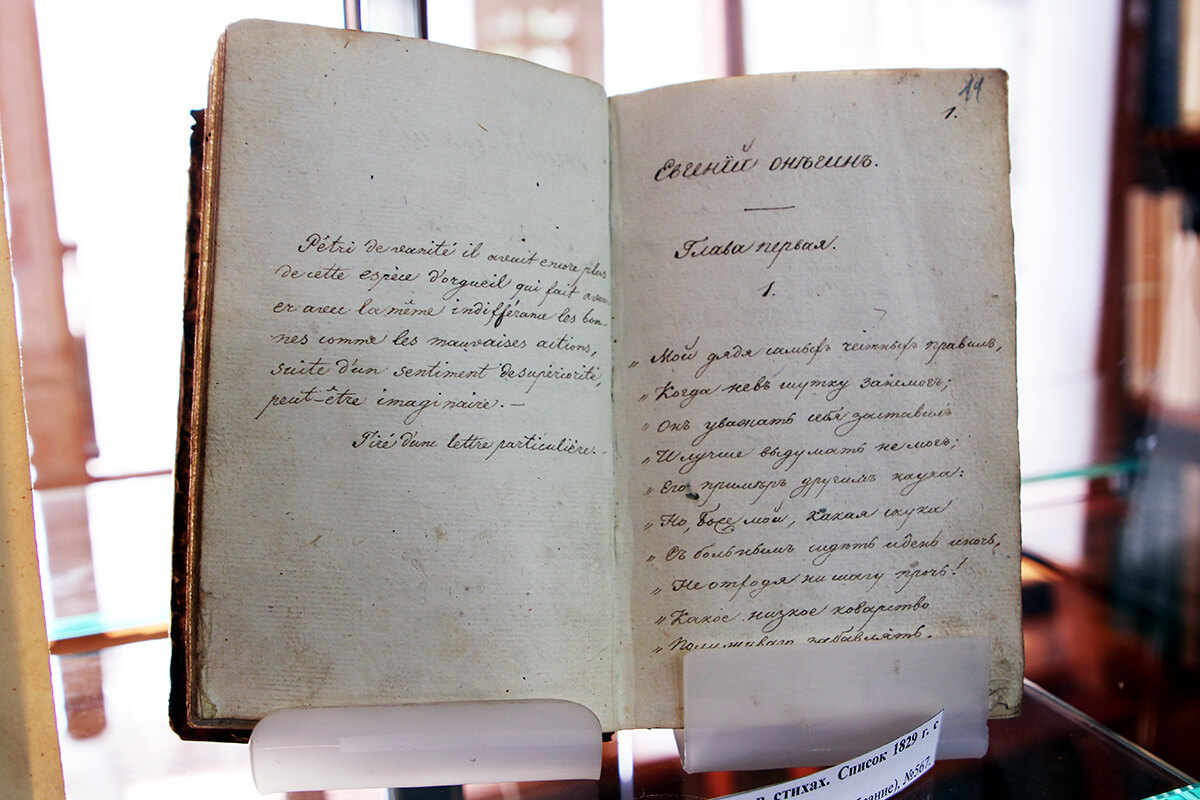 Pétri de vanité il avait encore plus
de cette espèce d'orgueil qui fait avou
er avec la même indifférance les bon-
nes comme les mauvaises actions,
suite d'un sentiment de supériorité,
peut-être imaginaire. —
Tiré d'une lettre particulière. -
1.
Евгеній Онѣгинъ.
Глава первая.
1.
„ Мой дядя самыхъ честныхъ правилъ,
„ Когда невъ шутку занемогъ;
„ Онъ уважать себя заставилъ
„ И лучше выдумать не могъ;
„ Его примѣръ другимъ наука:
„ Но, Боже мой, какая скука
„ Съ больнымъ сидѣть и день и ночь,
„ Не отходя ни шагу прочь!
„ Какое низкое коварство
„ Полуживаго забавлять.
в стихах. Список 1829 г. с
№567.